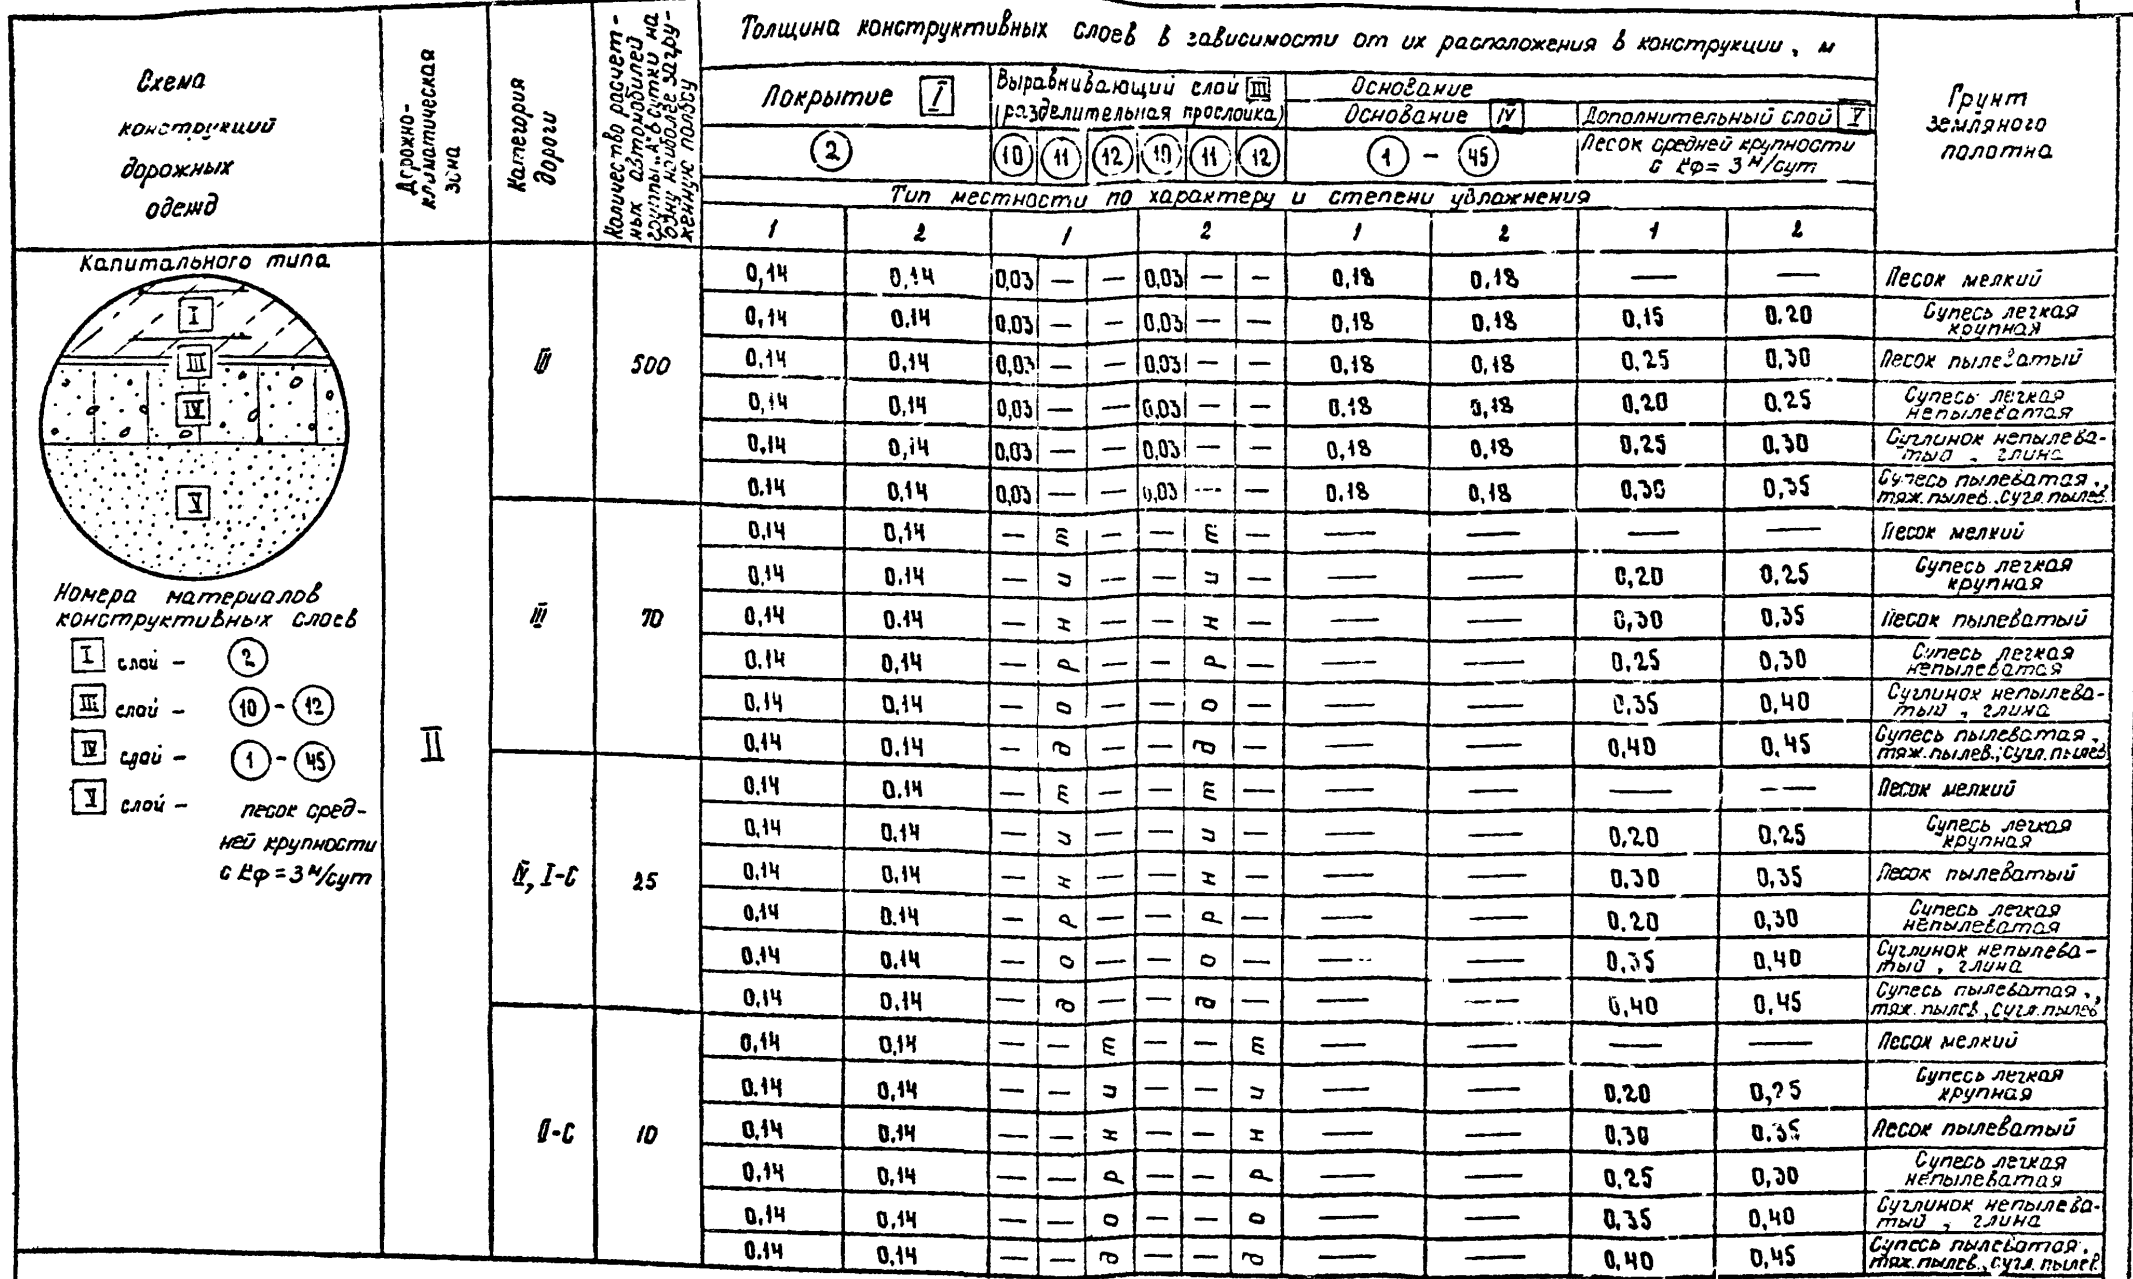 Схема
конструкций
дорожных
одежд
Дорожно-
климатическая
зона
Категория
дороги
Количество расчет-
ных автомобилей
группы „А" в сутки на
одну наиболее загру-
женную полосу
Толщина конструктивных слоев в зависимости от их расположения в конструкции, м
Покрытие I
2
Выравнивающий слой III
(разделительная прослойка)
10 11 12 10 11 12
Основание
Основание IV
1 - 45
Дополнительный слой V
Песок средней крупности
с Кф= 3 м/сут
Грунт
земляного
полотна
Тип местности по характеру и степени увлажнения
1 2 1 2 1 2 1 2
Капитального типа
I
III
IV
V
Номера материалов
конструктивных слоев
I слой - 2
III слой - 10 - 12
IV слой - 1 - 45
V слой - песок сред-
ней крупности
с Кф = 3 м/сут
II
III 500
0,14 0,14 0,03 — — 0,03 — — 0,18 0,18 — — Песок мелкий
0,14 0.14 0,03 — — 0,03 — — 0,18 0.18 0,15 0.20 Супесь легкая
крупная
0,14 0,14 0,03 — — 0,03 — — 0,18 0,18 0,25 0,30 Песок пылеватый
0,14 0,14 0,03 — — 0,03 — — 0.18 0,18 0,20 0.25 Супесь легкая
непылеватая
0,14 0,14 0,03 — — 0,03 — — 0,18 0,18 0,25 0.30 Суглинок непылева-
тый, глина
0.14 0,14 0,03 — — 0,03 — — 0.18 0,18 0,30 0,35 Супесь пылеватая,
тяж.пылев., сугл.пылев.
III 70
0,14 0,14 — т — — т — — — — — Песок мелкий
0,14 0.14 — и — — и — — — 0,20 0,25 Супесь легкая
крупная
0,14 0.14 — н — — н — — — 0,30 0,35 Песок пылеватый
0.14 0,14 — р — — р — — — 0.25 0,30 Супесь легкая
непылеватая
0,14 0,14 — о — — о — — — 0,35 0,40 Суглинок непылева-
тый, глина
0,14 0.14 — д — — д — — — 0,40 0.45 Супесь пылеватая,
тяж.пылев.; сугл.пылев.
IV, I-С 25
0.14 0.14 — т — — т — — — — — Песок мелкий
0,14 0,14 — и — — и — — — 0,20 0,25 Супесь легкая
крупная
0,14 0,14 — н — — н — — — 0.30 0,35 Песок пылеватый
0,14 0.14 — р — — р — — — 0.20 0,30 Супесь легкая
непылеватая
0,14 0,14 — о — — о — — — 0,35 0,40 Суглинок непылева-
тый, глина
0,14 0,14 — д — — д — — — 0,40 0,45 Супесь пылеватая,
тяж.пылев., сугл.пылев.
II-С 10
0,14 0,14 — — т — — т — — — — Песок мелкий
0.14 0,14 — — и — — и — — 0.20 0,25 Супесь легкая
крупная
0,14 0.14 — — н — — н — — 0,30 0.35 Песок пылеватый
0,14 0,14 — — р — — р — — 0,25 0,30 Супесь легкая
непылеватая
0,14 0,14 — — о — — о — — 0,35 0,40 Суглинок непылева-
тый, глина
0.14 0,14 — — д — — д — — 0,40 0,45 Супесь пылеватая,
тяж.пылев., сугл.пылев.